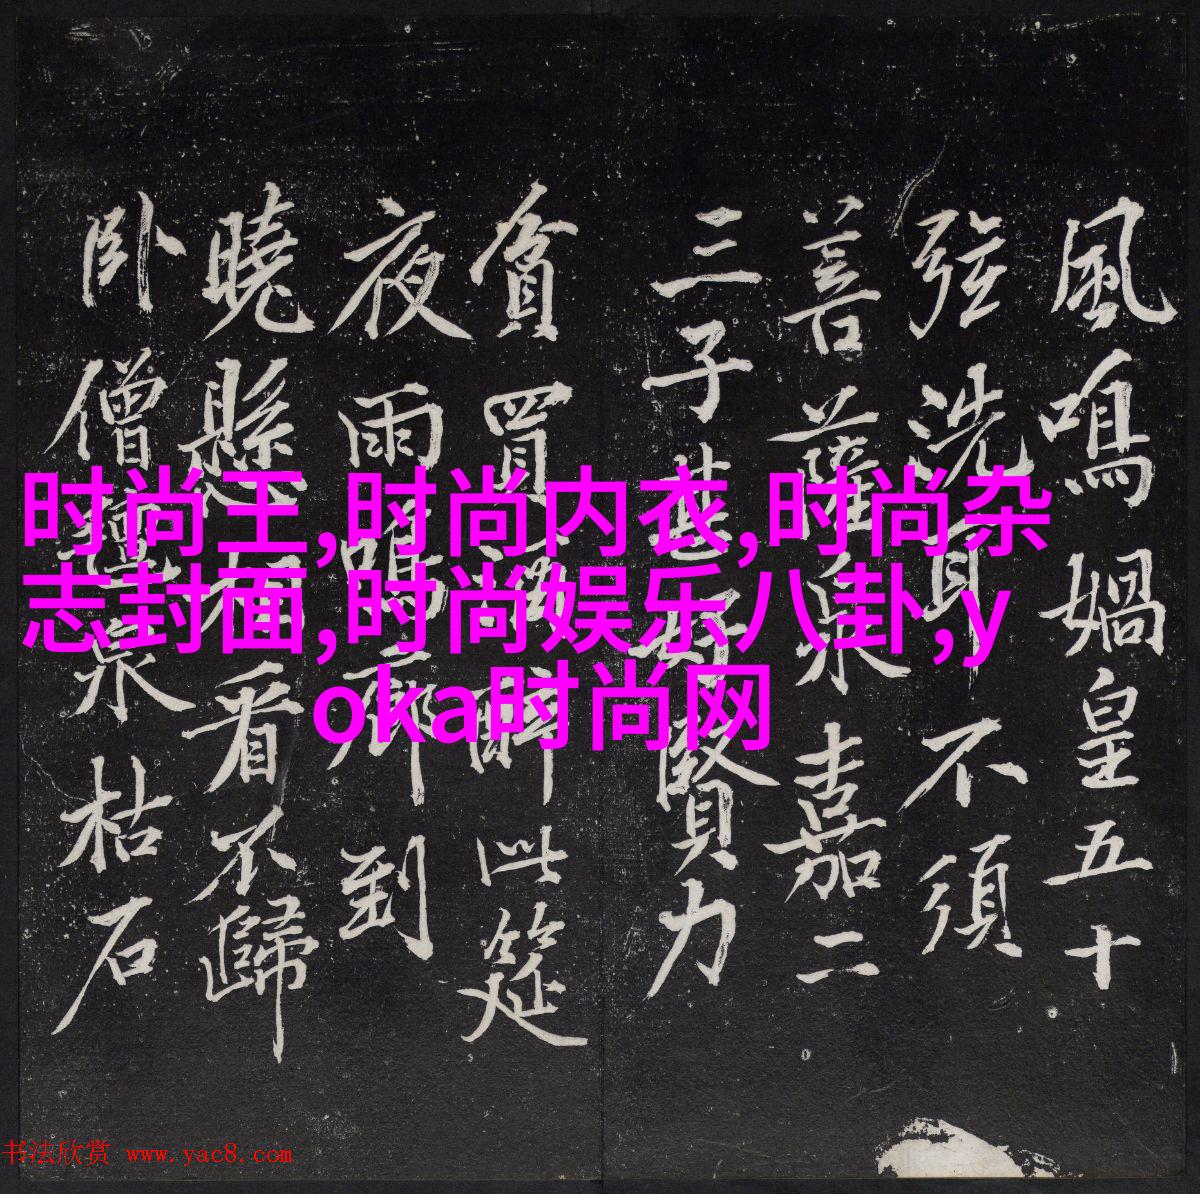 风鳴媧皇五十
弦洗耳不須
菩薩泉嘉二
三子甚好賢力
貧買酒醉此筵
夜雨鳴廊到
曉懸相看不歸
卧僧氈泉枯石
时尚王,时尚内衣,时尚杂
志封面,时尚娱乐八卦,y
oka时尚网
书法欣赏 www.yac8.com